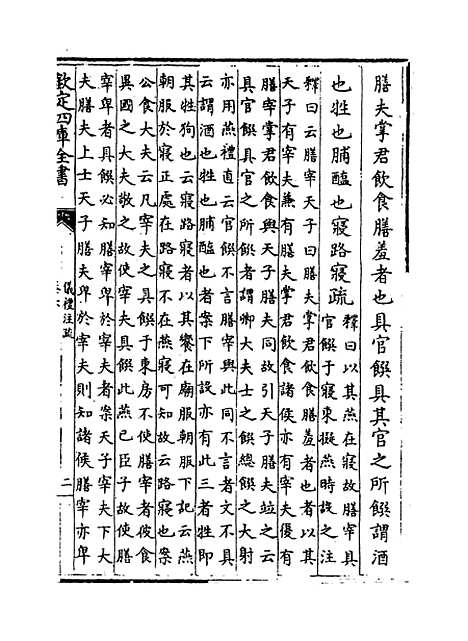 膳夫掌君飲食膳羞者也具官饌具其官之所饌謂酒
也牲也脯醢也寢路寢疏
釋曰以其燕在寢故膳宰具
官饌于寢東擬燕時設之注
釋曰云膳宰天子曰膳夫掌君飲食膳羞者也者以其
天子有宰夫兼有膳夫掌君飲食諸侯亦有宰夫復有
膳宰掌君飲食與天子膳夫同故引天子膳夫並之云
具官饌具官之所饌者謂卿大夫士之饌總饌之大射
亦用燕禮直云官饌不言膳宰與此同不言者文不具
云謂酒也牲也脯醢也者案下所設亦有此三者牲即
其牲狗也云寢路寢者以其饗在廟服朝服下記云燕
朝服於寢正處在路寢不在燕寢可知故云路寢也案
公食大夫云凡宰夫之具饌于東房不使膳宰者彼食
異國之大夫敬之故使宰夫具饌此燕已臣子故使膳
宰卑者具饌必知膳宰卑於宰夫者案天子宰夫下大
夫膳夫上士天子膳夫卑於宰夫則知諸侯膳宰亦卑
欽定四庫全書
儀禮注疏
卷六
二